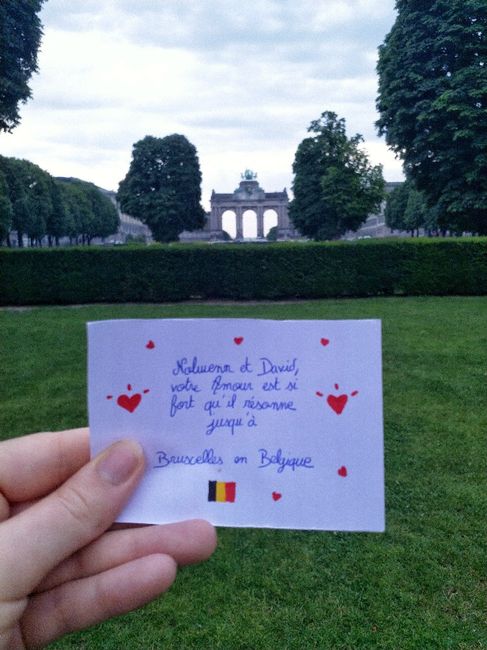 Nolwenn et David,
votre Amour est si
fort qu'il résonne
jusqu'à
Bruxelles en Belgique